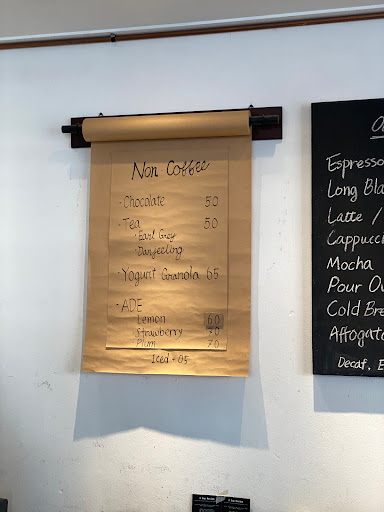 Non Coffee
· Chocolate 50
· Tea 50
· Earl Grey
· Darjeeling
· Yogurt Granola 65
· ADE
Lemon 60
Strawberry 70
Plum 70
Iced + 05
Espresso
Long Bla
Latte /
Cappucci
Mocha
Pour Ov
Cold Bre
Affogato
Decaf, E